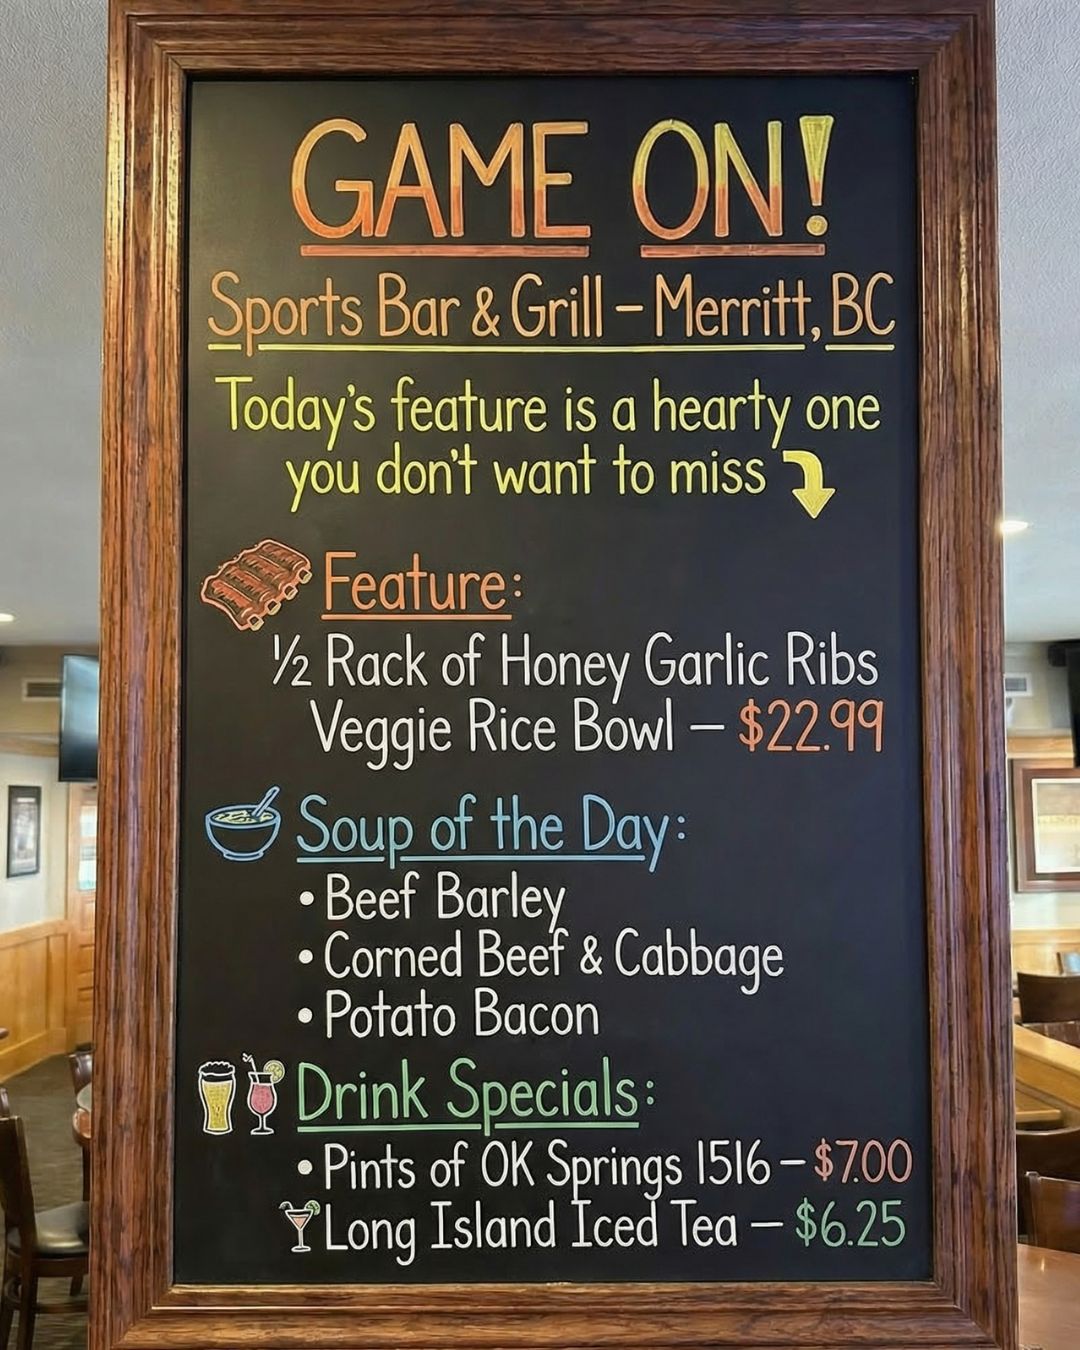 GAME ON!
Sports Bar & Grill – Merritt, BC
Today's feature is a hearty one
you don't want to miss
Feature:
½ Rack of Honey Garlic Ribs
Veggie Rice Bowl – $22.99
Soup of the Day:
• Beef Barley
• Corned Beef & Cabbage
• Potato Bacon
Drink Specials:
• Pints of OK Springs 1516 – $7.00
Long Island Iced Tea – $6.25